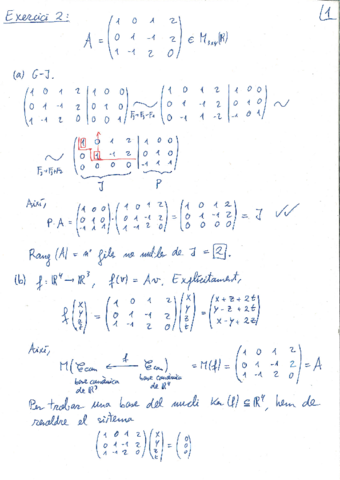 Exercici 2: 1
A = ( 1 0 1 2 ; 0 1 -1 2 ; 1 -1 2 0 ) ∈ M₃ₓ₄(ℝ)
(a) G-J.
( 1 0 1 2 | 1 0 0 ; 0 1 -1 2 | 0 1 0 ; 1 -1 2 0 | 0 0 1 ) ~ F₃=F₃-F₁ ( 1 0 1 2 | 1 0 0 ; 0 1 -1 2 | 0 1 0 ; 0 -1 1 -2 | -1 0 1 ) ~
~ F₃=F₃+F₂ ( 1 0 1 2 | 1 0 0 ; 0 1 -1 2 | 0 1 0 ; 0 0 0 0 | -1 1 1 )
J P
Així,
P·A = ( 1 0 0 ; 0 1 0 ; -1 1 1 ) · ( 1 0 1 2 ; 0 1 -1 2 ; 1 -1 2 0 ) = ( 1 0 1 2 ; 0 1 -1 2 ; 0 0 0 0 ) = J ✓✓
Rang(A) = nº fils no nul·les de J = 2.
(b) f: ℝ⁴ → ℝ³, f(v) = Av. Explícitament,
f( x ; y ; z ; t ) = ( 1 0 1 2 ; 0 1 -1 2 ; 1 -1 2 0 ) ( x ; y ; z ; t ) = ( x+z+2t ; y-z+2t ; x-y+2z )
Així,
M( ℰcan ←f ℰcan ) = M(f) = ( 1 0 1 2 ; 0 1 -1 2 ; 1 -1 2 0 ) = A
base canònica de ℝ³ base canònica de ℝ⁴
Per trobar una base del nucli Ker(f) ⊆ ℝ⁴, hem de
resoldre el sistema
( 1 0 1 2 ; 0 1 -1 2 ; 1 -1 2 0 ) ( x ; y ; z ; t ) = ( 0 ; 0 ; 0 )